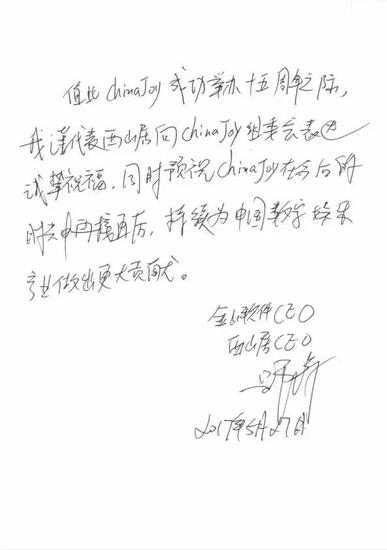 值此ChinaJoy成功举办十五周年之际，
我谨代表西山居向ChinaJoy组委会表达
诚挚祝福，同时预祝ChinaJoy在今后的
时光中再接再厉，持续为中国数字娱乐
产业做出更大贡献。
金山软件CEO
西山居CEO
2017年5月27日